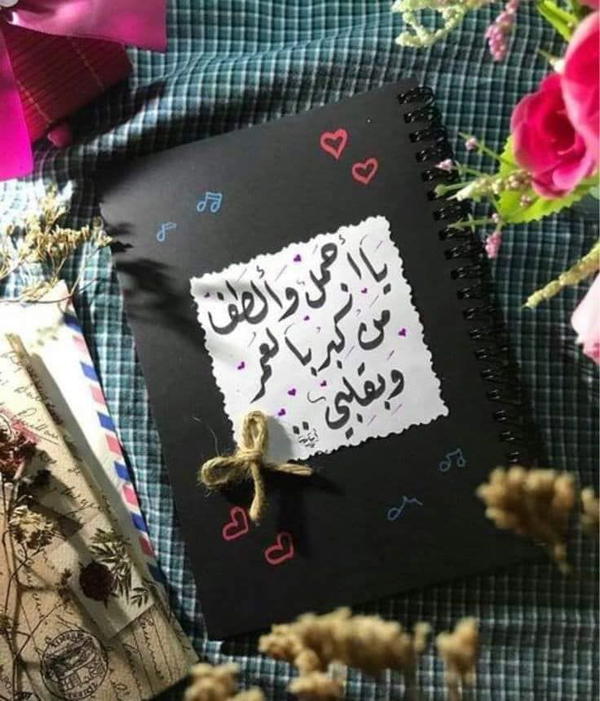 يا أجمل وألطف
من كبر بالعمر
وبقلبي ..